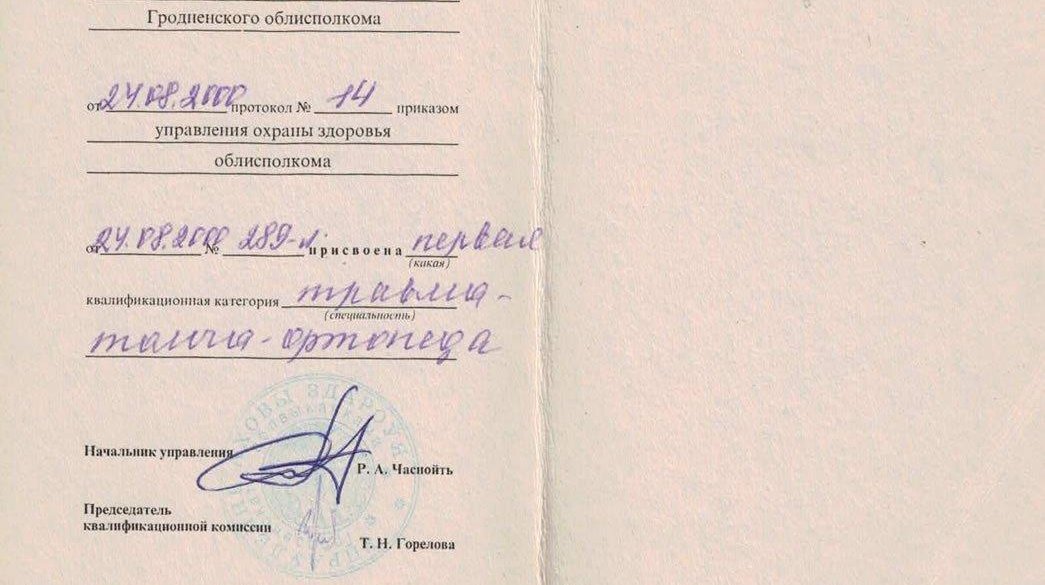 Гродненского облисполкома
от 24.08.2000 протокол № 14 приказом
управления охраны здоровья
облисполкома
от 24.08.2000 № 289-л присвоена первая
(какая)
квалификационная категория травма-
(специальность)
толога-ортопеда
Начальник управления
Р. А. Часнойть
Председатель
квалификационной комиссии
Т. Н. Горелова
ХОВЫ ЗДАРОЎЯ